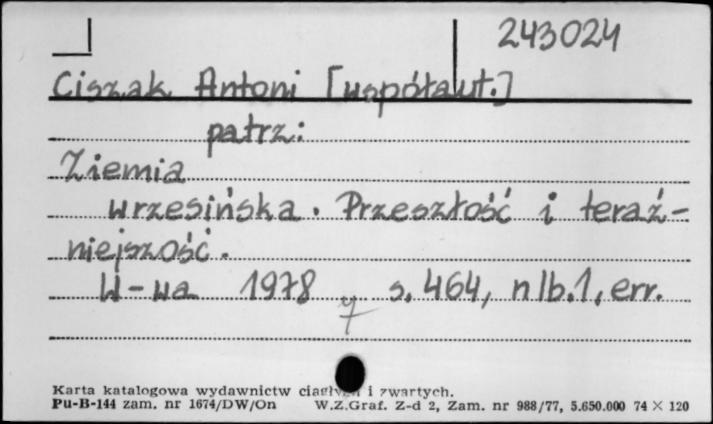 243024
Ciszak Antoni [współaut.]
patrz:
Ziemia
wrzesińska. Przeszłość i teraź-
niejszość.
W-wa 1978 s. 464, nlb. 1, err.
7
Karta katalogowa wydawnictw ciągłych i zwartych.
Pu-B-144 zam. nr 1674/DW/On W.Z.Graf. Z-d 2, Zam. nr 988/77, 5.650.000 74 × 120